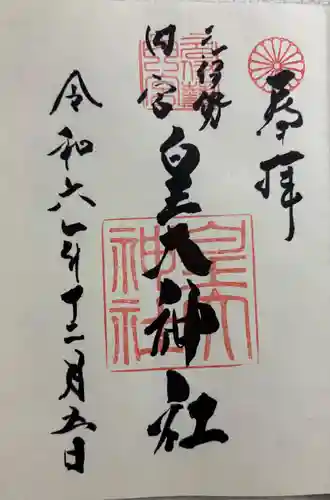 奉拝
元伊勢
内宮
皇大神社
皇大
神社
令和六年十二月五日